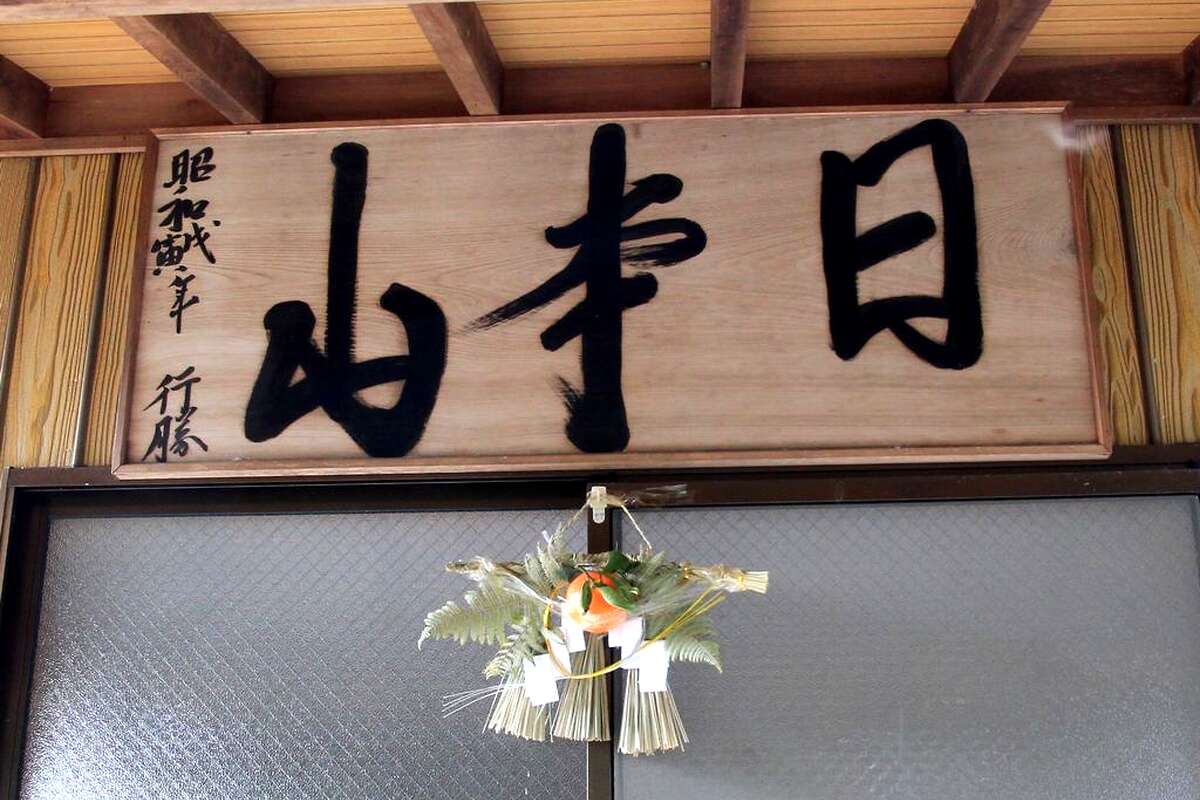 日本山
昭和戊寅年 行勝